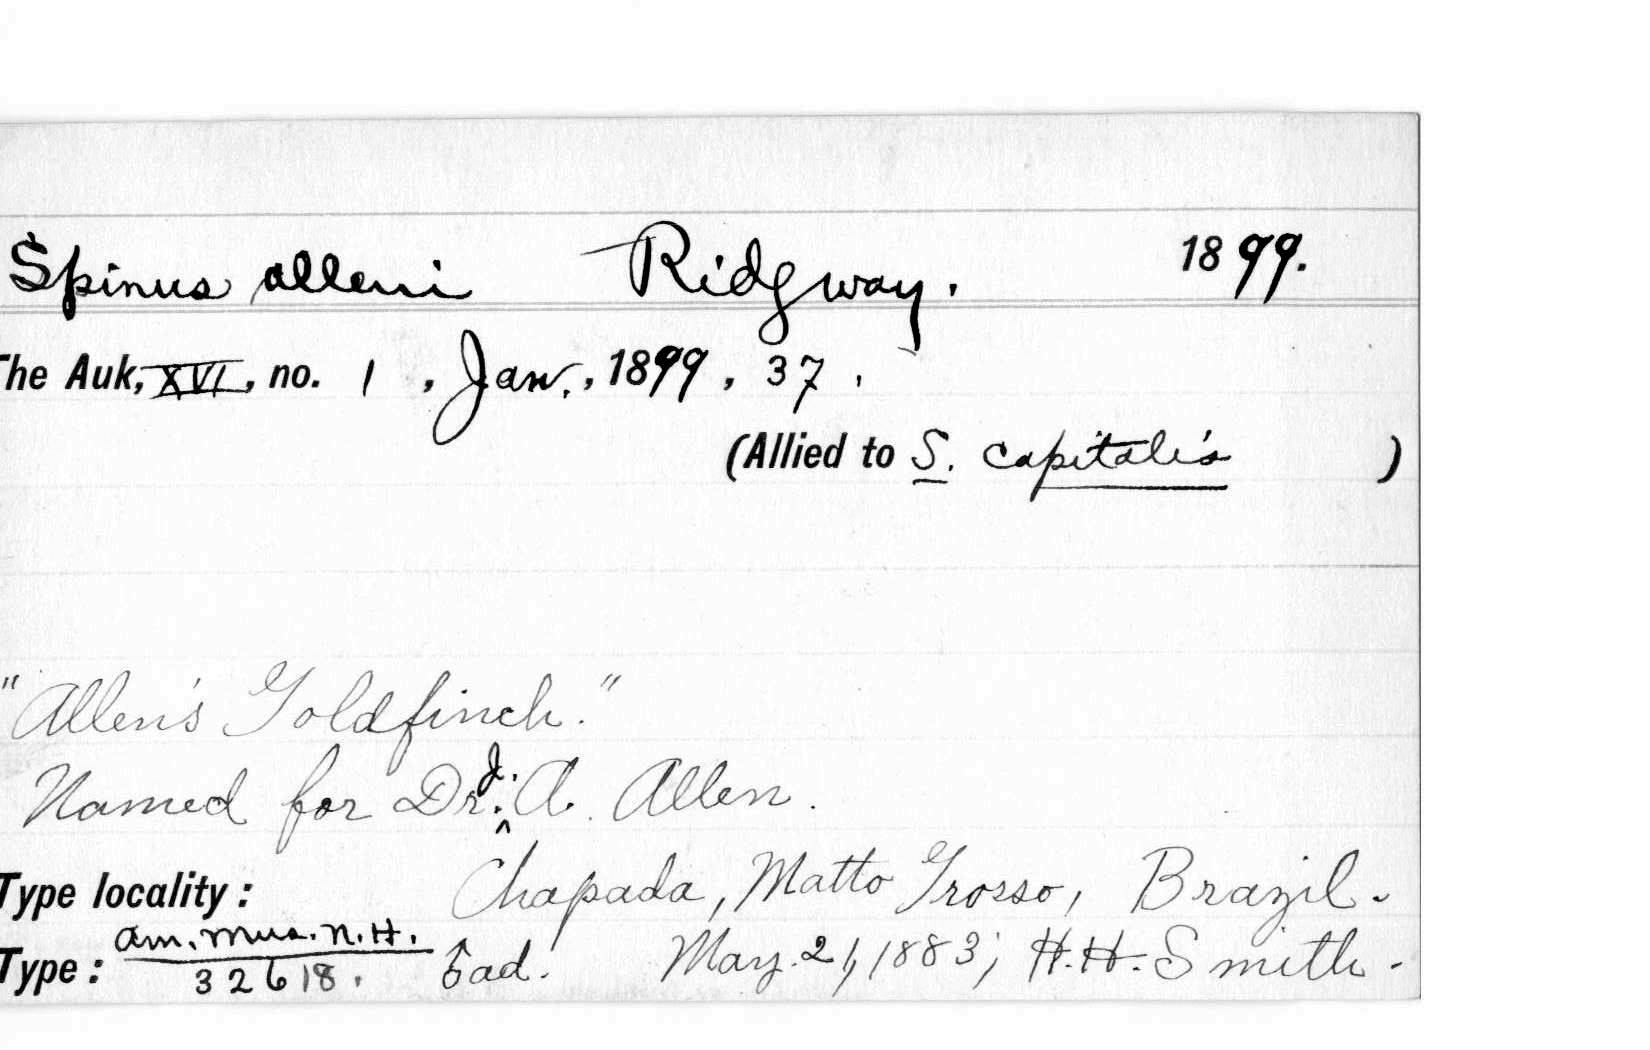 Spinus alleni Ridgway. 1899.
The Auk, XVI, no. 1, Jan., 1899, 37.
(Allied to S. capitalis )
"Allen's Goldfinch."
Named for Dr. J. A. Allen.
Type locality: Chapada, Matto Grosso, Brazil.
Type: Am. Mus. N. H. ♂ ad. May 21, 1883; H. H. Smith.
32618.